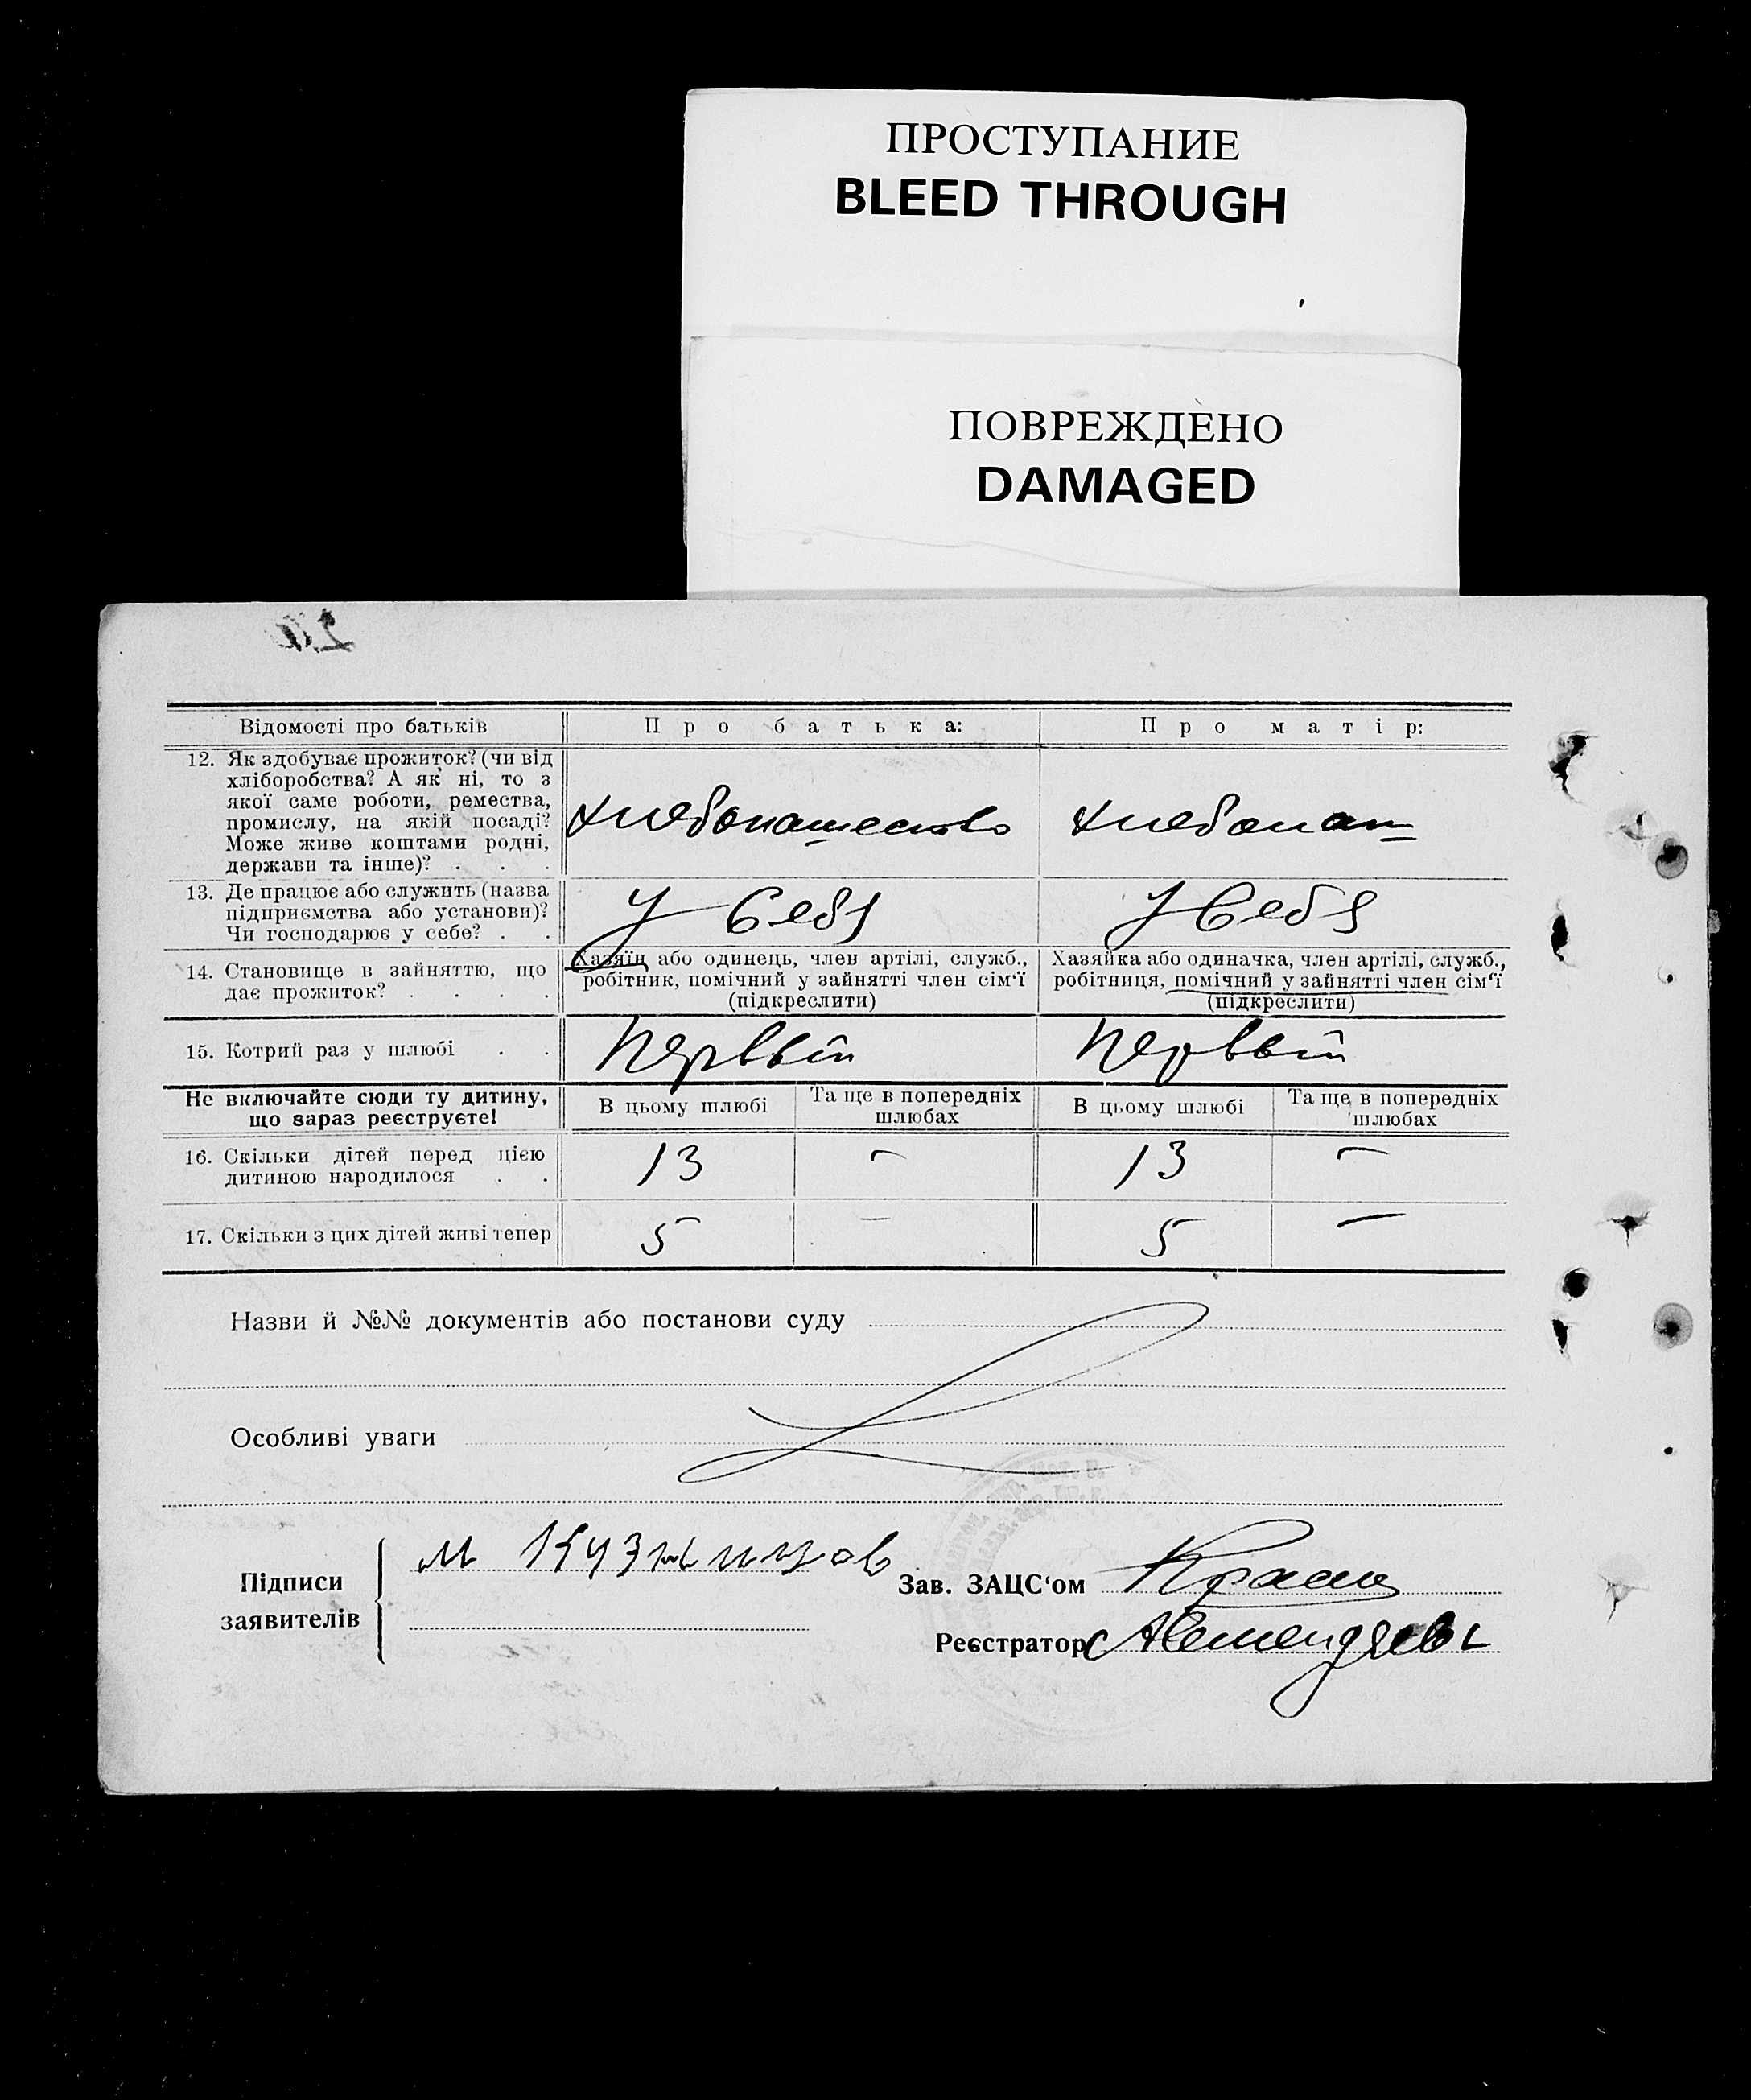 ПРОСТУПАНИЕ
BLEED THROUGH
ПОВРЕЖДЕНО
DAMAGED
Відомості про батьків
Про батька:
Про матір:
12. Як здобуває прожиток? (чи від
хліборобства? А як ні, то з
якої саме роботи, ремества,
промислу, на якій посаді?
Може живе коштами родні,
держави та інше)? . . .
хлебопашество
хлебопаш
13. Де працює або служить (назва
підприємства або установи)?
Чи господарює у себе? . .
У себя
У себя
14. Становище в зайняттю, що
дає прожиток? . . . .
Хазяїн або одинець, член артілі, служб.,
робітник, помічний у зайнятті член сім‘ї
(підкреслити)
Хазяйка або одиначка, член артілі, служб.,
робітниця, помічний у зайнятті член сім‘ї
(підкреслити)
15. Котрий раз у шлюбі . .
Первый
Первый
Не включайте сюди ту дитину,
що зараз реєструєте!
В цьому шлюбі
Та ще в попередніх
шлюбах
В цьому шлюбі
Та ще в попередніх
шлюбах
16. Скільки дітей перед цією
дитиною народилося . .
13 – 13 –
17. Скільки з цих дітей живі тепер
5 – 5 –
Назви й №№ документів або постанови суду
Особливі уваги
Підписи
заявителів
М Кузьминов
Зав. ЗАЦС‘ом
Реєстратор